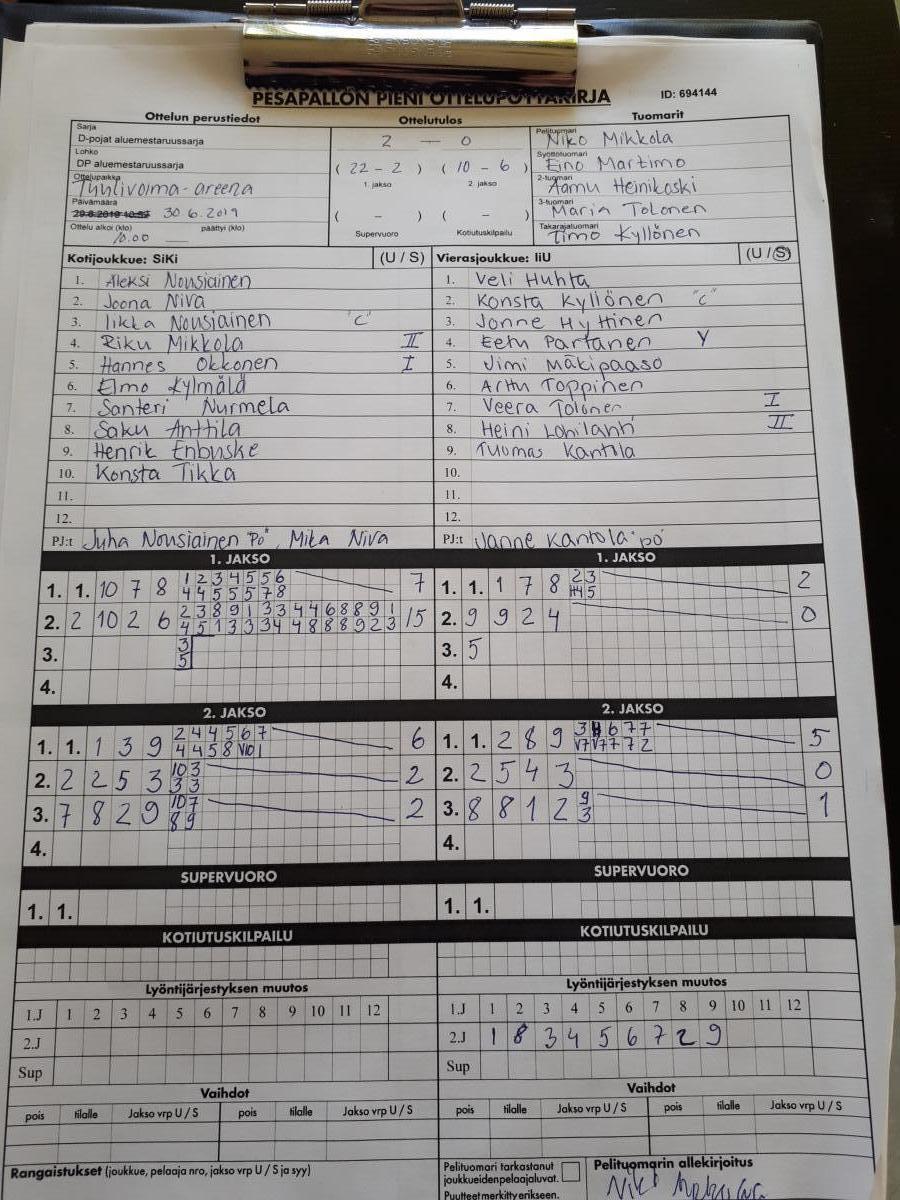 PESÄPALLON PIENI OTTELUPÖYTÄKIRJA ID: 694144
Ottelun perustiedot Ottelutulos Tuomarit
Sarja
D-pojat aluemestaruussarja
2 — 0
Pelituomari
Niko Mikkola
Lohko
DP aluemestaruussarja
( 22 - 2 ) ( 10 - 6 )
1. jakso 2. jakso
Syöttötuomari
Eino Martimo
Ottelupaikka
Tuulivoima-areena
2-tuomari
Aamu Heinikoski
Päivämäärä
30 6.2019
( - ) ( - )
Supervuoro Kotiutuskilpailu
3-tuomari
Maria Tolonen
Ottelu alkoi (klo) päättyi (klo)
10.00
Takarajatuomari
Timo Kyllönen
Kotijoukkue: SiKi (U / S) Vierasjoukkue: IiU (U / S)
1. Aleksi Nousiainen 1. Veli Huhta
2. Joona Niva 2. Konsta Kyllönen "C"
3. Iikka Nousiainen "C" 3. Jonne Hyttinen
4. Riku Mikkola II 4. Eetu Partanen Y
5. Hannes Okkonen I 5. Jimi Mäkipaaso
6. Elmo Kylmälä 6. Arttu Toppinen
7. Santeri Nurmela 7. Veera Tolonen I
8. Saku Anttila 8. Heini Lohilahti II
9. Henrik Enbuske 9. Tuomas Kantola
10. Konsta Tikka 10.
11. 11.
12. 12.
PJ:t Juha Nousiainen "Pö", Mika Niva PJ:t Janne Kantola "pö"
1. JAKSO 1. JAKSO
1. 1. 10 7 8 1 2 3 4 5 5 6 7 1. 1. 1 7 8 2 3 2
4 4 5 5 5 7 8 4 5
2. 2 10 2 6 2 3 8 9 1 3 3 4 4 6 8 8 9 1 15 2. 9 9 2 4 0
4 5 1 3 3 3 4 4 8 8 8 9 2 3
3. 3 3. 5
5
4. 4.
2. JAKSO 2. JAKSO
1. 1. 1 3 9 2 4 4 5 6 7 6 1. 1. 2 8 9 5
4 4 5 8
2. 2 2 5 3 10 3 2 2. 2 5 4 3 0
3 3
3. 7 8 2 9 10 7 2 3. 8 8 1 2 9 1
8 9 3
4. 4.
SUPERVUORO SUPERVUORO
1. 1. 1. 1.
KOTIUTUSKILPAILU KOTIUTUSKILPAILU
Lyöntijärjestyksen muutos Lyöntijärjestyksen muutos
1.J 1 2 3 4 5 6 7 8 9 10 11 12 1.J 1 2 3 4 5 6 7 8 9 10 11 12
2.J 2.J 1 8 3 4 5 6 7 2 9
Sup Sup
Vaihdot Vaihdot
pois tilalle Jakso vrp U / S pois tilalle Jakso vrp U / S pois tilalle Jakso vrp U / S pois tilalle Jakso vrp U / S
Rangaistukset (joukkue, pelaaja nro, jakso vrp U / S ja syy) Pelituomari tarkastanut Pelituomarin allekirjoitus
joukkueidenpelaajaluvat.
Puutteet merkitty erikseen.